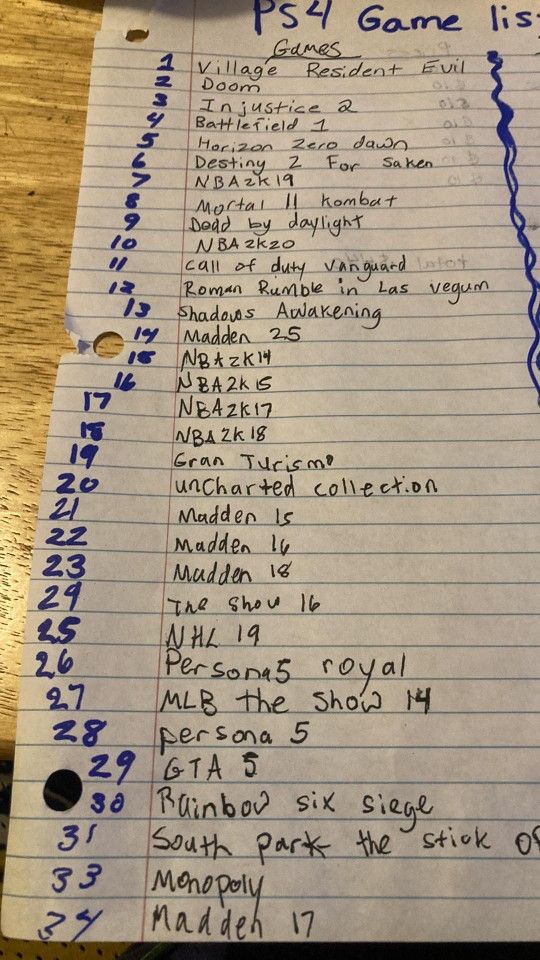 PS4 Game lis
Games
1 Village Resident Evil
2 Doom
3 Injustice 2
4 Battlefield 1
5 Horizon Zero dawn
6 Destiny 2 For saken
7 NBA2K19
8 Mortal 11 kombat
9 Dead by daylight
10 NBA2K20
11 call of duty vanguard
12 Roman Rumble in Las vegum
13 Shadows Awakening
14 Madden 25
15 NBA2K14
16 NBA2K15
17 NBA2K17
18 NBA2K18
19 Gran Turismo
20 uncharted collection
21 Madden 15
22 Madden 16
23 Madden 18
29 The show 16
25 NHL 19
26 Persona5 royal
27 MLB the show 14
28 persona 5
29 GTA 5
30 Rainbow six siege
31 South park the stick of
33 Monopoly
34 Madden 17